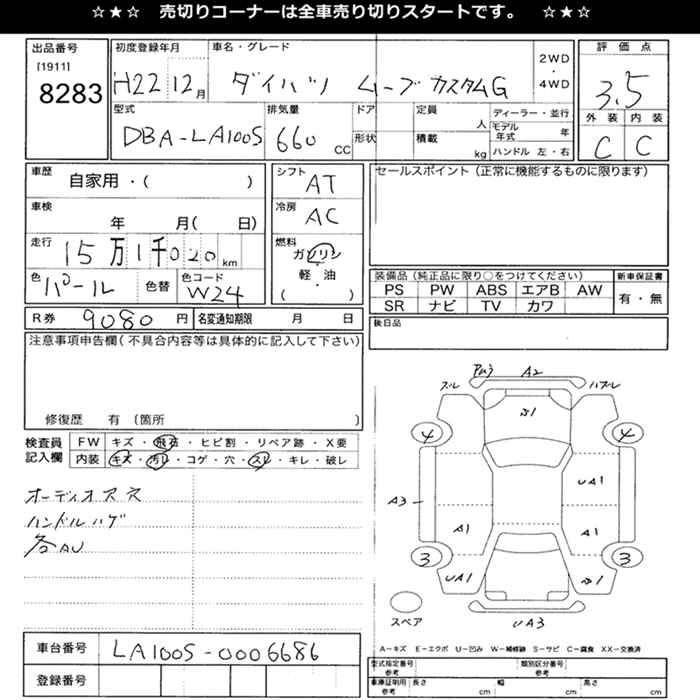 ☆★☆ 売切りコーナーは全車売り切りスタートです。 ☆★☆
出品番号
[1911]
8283
初度登録年月
H22 12月
車名・グレード
ダイハツ ムーブカスタムG
2WD
・
4WD
評価点
3.5
外装 内装
C C
型式
DBA-LA100S
排気量
660 CC
ドア
形状
定員
人
積載
kg
ディーラー・並行
モデル年式 年
ハンドル 左・右
車歴
自家用・( )
シフト
AT
セールスポイント(正常に機能するものに限ります)
車検
年 月( 日)
冷房
AC
走行
15万1千020km
燃料
ガソリン
・
軽・油
( )
色
パール
色替
色コード
W24
装備品(純正品に限り○をつけてください)
PS PW ABS エアB AW
SR ナビ TV カワ
新車保証書
有・無
R券 9080円
名変通知期限 月 日
後日品
注意事項申告欄(不具合内容等は具体的に記入して下さい)
修復歴 有(箇所 )
検査員
記入欄
FW キズ・飛石・ヒビ割・リペア跡・X要
内装 キズ・汚レ・コゲ・穴・スレ・キレ・破レ
オーディオススス
ハンドルハゲ
各AU
A2
4 4
UA1
A3
A1 A1
3 3
UA1
スペア
UA3
A-キズ E-エクボ U-凹み W-補修跡 S-サビ C-腐食 XX-交換済
車台番号
LA100S-0006686
登録番号
型式指定番号
参考
類別区分番号
参考
車庫証明用
参考
長さ cm 幅 cm 高さ cm